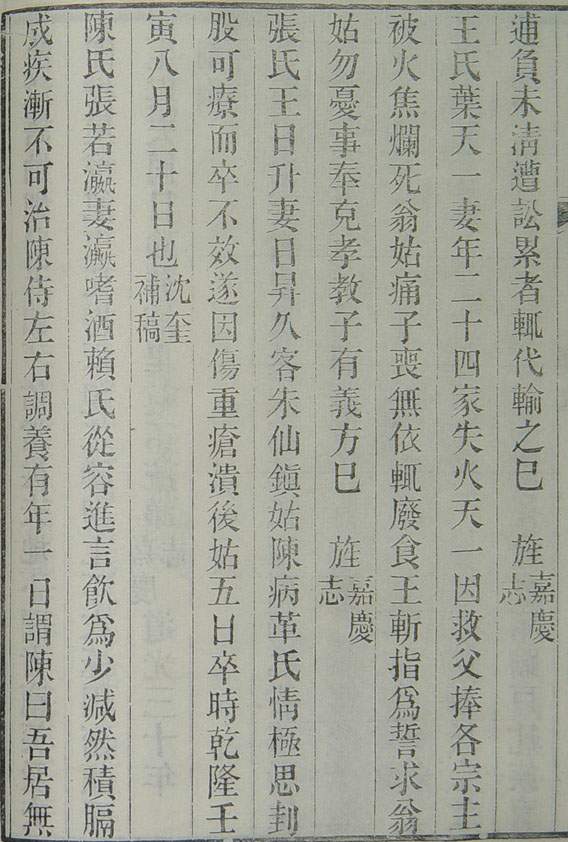 逋負未清遭訟累者輒代輸之已　旌嘉慶志
王氏葉天一妻年二十四家失火天一因救父捧各宗主
被火焦爛死翁姑痛子喪無依輒廢食王斬指爲誓求翁
姑勿憂事奉克孝教子有義方已　旌嘉慶志
張氏王日升妻日昇久客朱仙鎮姑陳病革氏情極思刲
股可療而卒不效遂因傷重瘡潰後姑五日卒時乾隆壬
寅八月二十日也沈奎補稿
陳氏張若瀛妻瀛嗜酒賴氏從容進言飲爲少減然積膈
成疾漸不可治陳侍左右調養有年一日謂陳曰吾居無